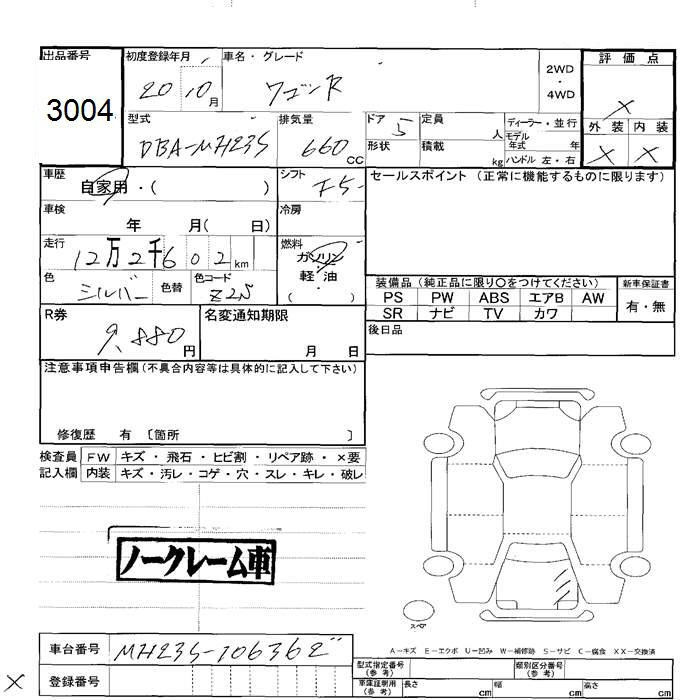 出品番号 初度登録年月 車名・グレード 2WD ・ 4WD 評価点
3004 20 10月 ワゴンR X
型式 排気量 ドア 定員 ディーラー・並行 外装 内装
DBA-MH23S 660 CC 5 人 モデル年式 年 X X
形状 積載 kg ハンドル 左・右
車歴 自家用・( ) シフト F5 セールスポイント (正常に機能するものに限ります)
車検 年 月( 日) 冷房
走行 12万2千602km 燃料 ガソリン・軽・油 ( )
色 シルバー 色替 色コード Z2S 装備品 (純正品に限り○をつけてください) 新車保証書
PS PW ABS エアB AW 有・無
SR ナビ TV カワ
R券 9,880円 名変通知期限 月 日 後日品
注意事項申告欄(不具合内容等は具体的に記入して下さい)
修復歴 有 〔箇所 〕
検査員 FW キズ・飛石・ヒビ割・リペア跡・×要
記入欄 内装 キズ・汚レ・コゲ・穴・スレ・キレ・破レ
ノークレーム車
スペア
A−キズ E−エクボ U−凹み W−補修跡 S−サビ C−腐食 XX−交換済
車台番号 MH23S-106362 型式指定番号(参考) 類別区分番号(参考)
X 登録番号 車庫証明用(参考) 長さ cm 幅 cm 高さ cm